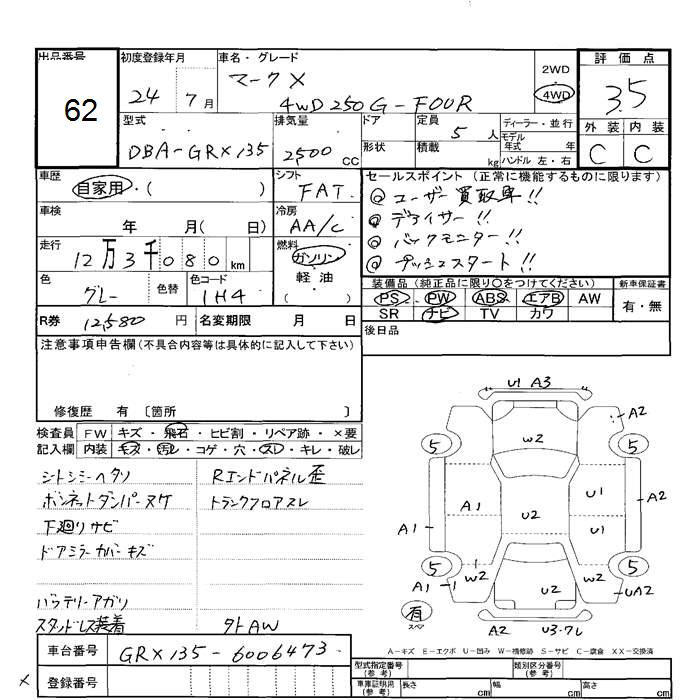 出品番号
62
初度登録年月
24年 7月
車名・グレード
マークX
4WD 250G-FOUR
2WD
4WD
評価点
3.5
外装 内装
C C
型式
DBA-GRX135
排気量
2500 cc
ドア
形状
定員 5人
積載 kg
ディーラー・並行
モデル年式 年
ハンドル 左・右
車歴
自家用・( )
シフト
FAT
セールスポイント (正常に機能するものに限ります)
◎ ユーザー買取車!!
◎ デアイサー!!
◎ バックモニター!!
◎ プッシュスタート!!
車検
年 月( 日)
冷房
AA/C
走行
12万3千080km
燃料
ガソリン・
軽油
( )
色
グレー
色替
色コード
1H4
装備品 (純正品に限り○をつけてください)
PS PW ABS エアB AW
SR ナビ TV カワ
新車保証書
有・無
R券 12,580円
名変期限 月 日
後日品
注意事項申告欄(不具合内容等は具体的に記入して下さい)
修復歴 有 〔箇所 〕
検査員記入欄
FW キズ・飛石・ヒビ割・リペア跡・×要
内装 キズ・汚レ・コゲ・穴・スレ・キレ・破レ
シートシミヘタリ
ボンネットダンパーヌケ
下廻りサビ
ドアミラーカバーキズ
バッテリーアガリ
スタッドレス装着
Rエンドパネル歪
トランクフロアスレ
外AW
U1 A3
A2
5 W2 5
A1 U1
A1 U2 U1 A2
5 5
A1 W2 U2 W2 UA2
有
スペア
A2 U3-ワレ
A-キズ E-エクボ U-凹み W-補修跡 S-サビ C-腐食 XX-交換済
車台番号 GRX135-6006473
登録番号
×
型式指定番号(参考)
類別区分番号(参考)
車庫証明用(参考) 長さ cm 幅 cm 高さ cm